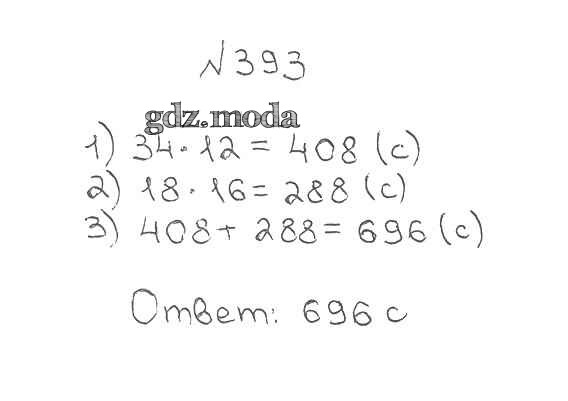 №393
gdz.moda
1) 34·12= 408 (с)
2) 18·16= 288 (с)
3) 408+ 288= 696 (с)
Ответ: 696 с